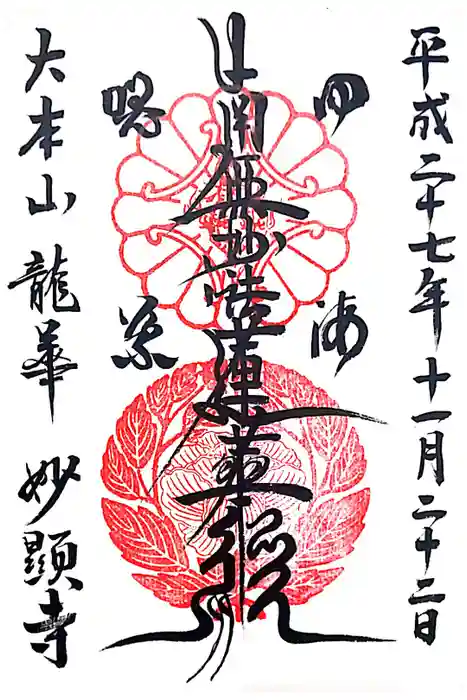 平成二十七年十一月二十二日
四海
南無妙法蓮華經
唱導
大本山 龍華 妙顯寺